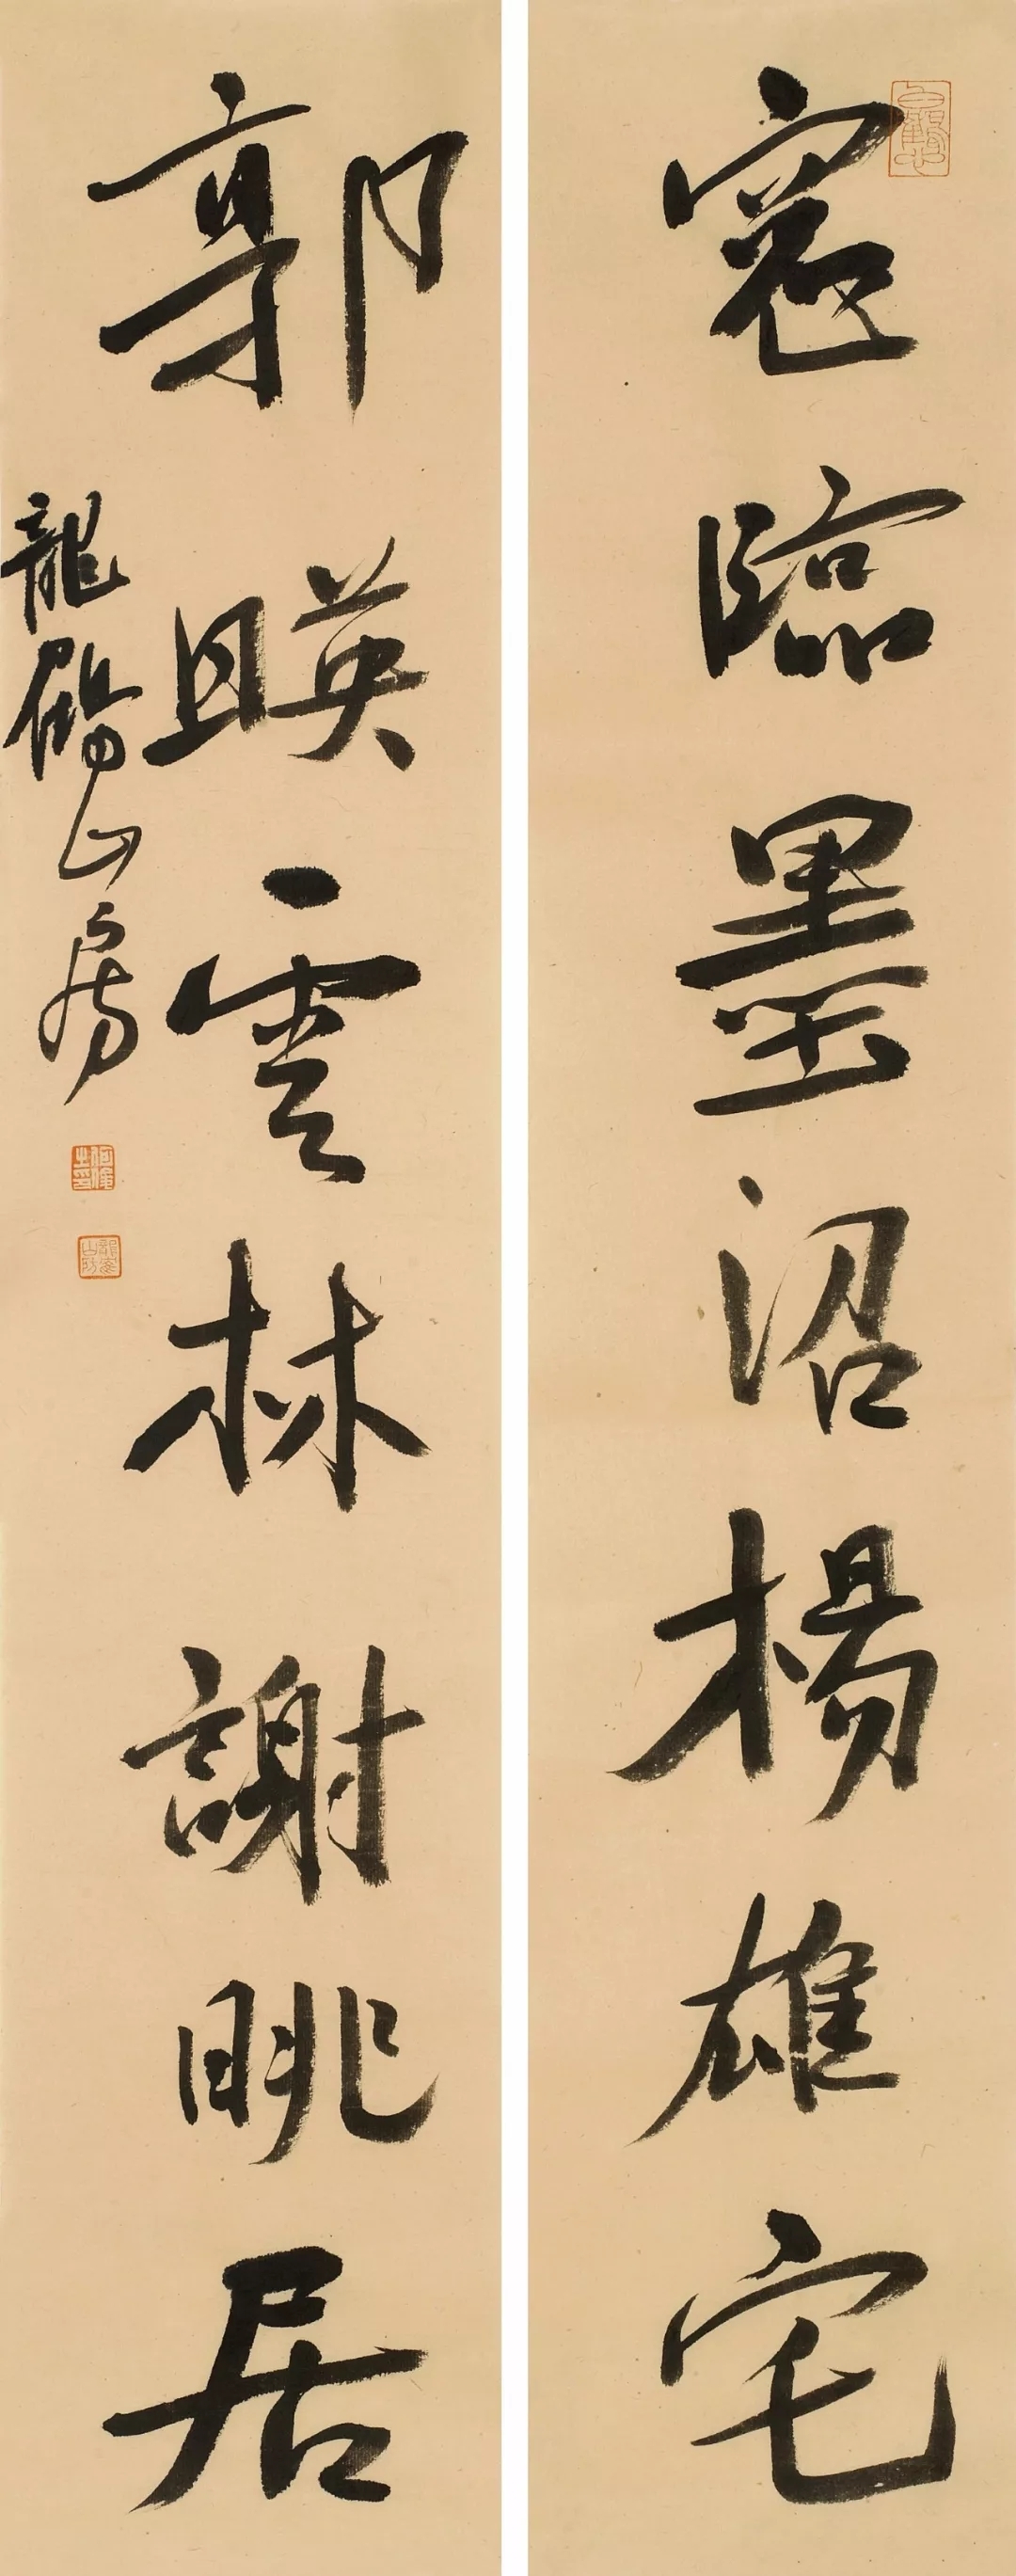 窻臨墨沼楊雄宅
郭暎雲林謝朓居
龍顧山房